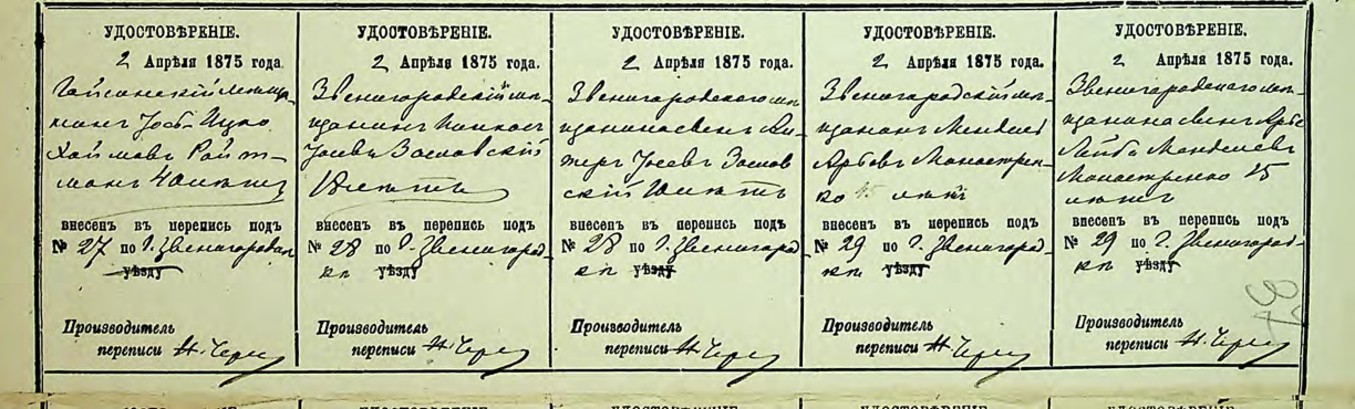 УДОСТОВѢРЕНІЕ.
2 Апрѣля 1875 года.
Гайсинскій мѣща-
нинъ Іосъ-Ицко
Хаймовъ Ройт-
манъ лѣтъ
внесенъ въ перепись подъ
№ 27 по г. Звенигородкѣ
уѣзду
Производитель
переписи Н. Чер
УДОСТОВѢРЕНІЕ.
2 Апрѣля 1875 года.
Звенигородскій мѣ-
щанинъ
Іосевъ Заславскій
лѣтъ
внесенъ въ перепись подъ
№ 28 по г. Звенигород-
кѣ уѣзду
Производитель
переписи Н. Чер
УДОСТОВѢРЕНІЕ.
2 Апрѣля 1875 года.
Звенигородскаго мѣ-
щанина сынъ
Іосевъ Заслав
скій лѣтъ
внесенъ въ перепись подъ
№ 28 по г. Звенигород-
кѣ уѣзду
Производитель
переписи Н. Чер
УДОСТОВѢРЕНІЕ.
2 Апрѣля 1875 года.
Звенигородскій мѣ-
щанинъ Мендель
Арьевъ Монастрен-
ко 45 лѣтъ
внесенъ въ перепись подъ
№ 29 по г. Звенигород-
кѣ уѣзду
Производитель
переписи Н. Чер
УДОСТОВѢРЕНІЕ.
2 Апрѣля 1875 года.
Звенигородскаго мѣ-
щанина сынъ Арье
Лейба Менделевъ
Монастренко 25
лѣтъ
внесенъ въ перепись подъ
№ 29 по г. Звенигород-
кѣ уѣзду
Производитель
переписи Н. Чер